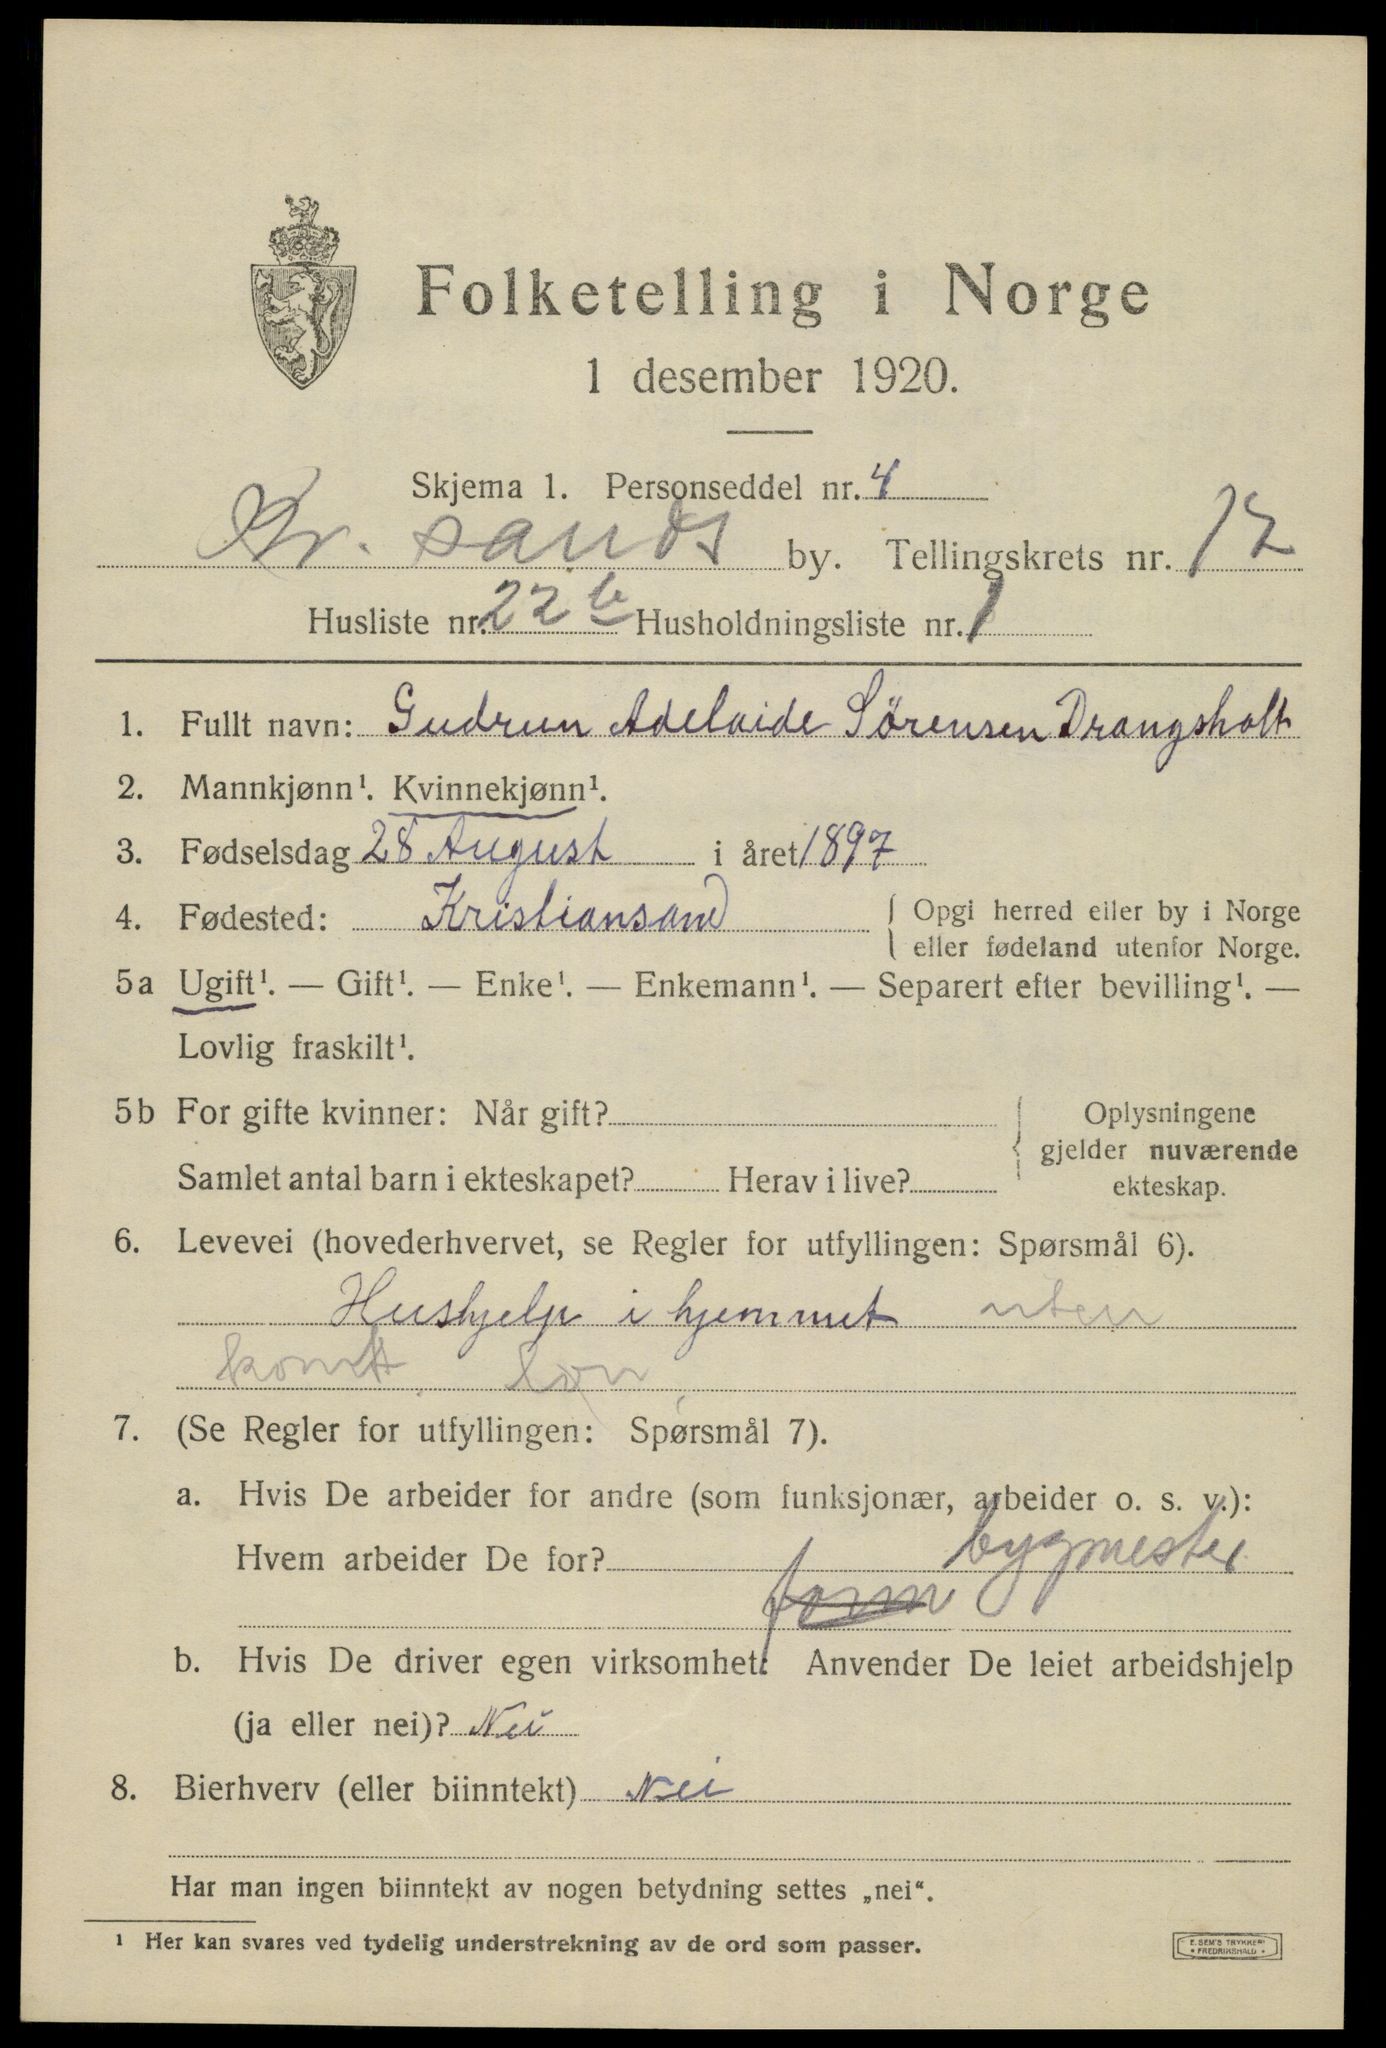 Folketelling i Norge
1 desember 1920.
Skjema 1. Personseddel nr. 4
Kr. sands by. Tellingskrets nr. 12
Husliste nr. 22 b Husholdningsliste nr. 1
1. Fullt navn: Gudrun Adelaide Sörensen Drangsholt
2. Mannkjønn¹. Kvinnekjønn¹.
3. Fødselsdag 28 August i året 1897
4. Fødested: Kristiansand { Opgi herred eller by i Norge
eller fødeland utenfor Norge.
5a Ugift¹. — Gift¹. — Enke¹. — Enkemann¹. — Separert efter bevilling¹. —
Lovlig fraskilt¹.
5b For gifte kvinner: Når gift? { Oplysningene
gjelder nuværende
Samlet antal barn i ekteskapet? Herav i live? ekteskap.
6. Levevei (hovederhvervet, se Regler for utfyllingen: Spørsmål 6).
Hushjelp i hjemmet uten
kont. løn
7. (Se Regler for utfyllingen: Spørsmål 7).
a. Hvis De arbeider for andre (som funksjonær, arbeider o. s. v.):
Hvem arbeider De for? bygmester
b. Hvis De driver egen virksomhet: Anvender De leiet arbeidshjelp
(ja eller nei)? Nei
8. Bierhverv (eller biinntekt) Nei
Har man ingen biinntekt av nogen betydning settes „nei“.
¹ Her kan svares ved tydelig understrekning av de ord som passer.
E. SEM'S TRYKKERI
• FREDRIKSHALD •